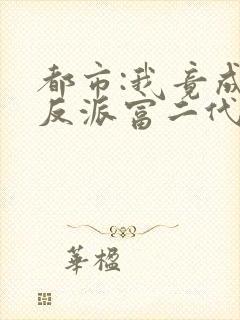 都市:我竟成
反派富二代
華楹